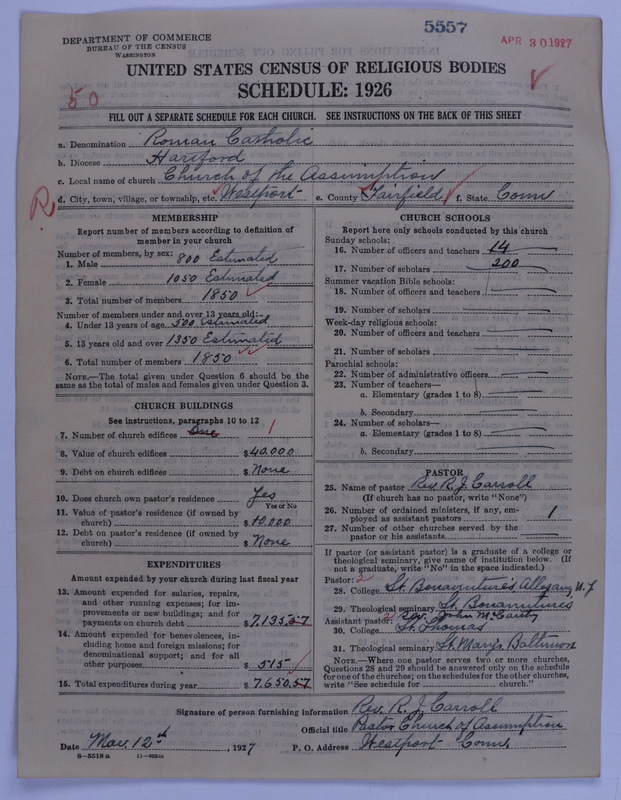 5557
APR 30 1927
DEPARTMENT OF COMMERCE
BUREAU OF THE CENSUS
WASHINGTON
UNITED STATES CENSUS OF RELIGIOUS BODIES
50
SCHEDULE: 1926
FILL OUT A SEPARATE SCHEDULE FOR EACH CHURCH. SEE INSTRUCTIONS ON THE BACK OF THIS SHEET
a. Denomination Roman Catholic
b. Diocese Hartford
c. Local name of church Church of the Assumption
R
d. City, town, village, or township, etc. Westport e. County Fairfield f. State Conn
MEMBERSHIP
Report number of members according to definition of
member in your church
Number of members, by sex:
1. Male 800 Estimated
2. Female 1050 Estimated
3. Total number of members 1850
Number of members under and over 13 years old:
4. Under 13 years of age 500 Estimated
5. 13 years old and over 1350 Estimated
6. Total number of members 1850
NOTE.—The total given under Question 6 should be the
same as the total of males and females given under Question 3.
CHURCH BUILDINGS
See instructions, paragraphs 10 to 12
7. Number of church edifices One 1
8. Value of church edifices $ 40.000
9. Debt on church edifices $ None
10. Does church own pastor's residence Yes
Yes or No
11. Value of pastor's residence (if owned by
church) $ 10.000
12. Debt on pastor's residence (if owned by
church) $ None
EXPENDITURES
Amount expended by your church during last fiscal year
13. Amount expended for salaries, repairs,
and other running expenses; for im-
provements or new buildings; and for
payments on church debt $ 7.135.57
14. Amount expended for benevolences, in-
cluding home and foreign missions; for
denominational support; and for all
other purposes $ 515
15. Total expenditures during year $ 7.650.57
CHURCH SCHOOLS
Report here only schools conducted by this church
Sunday schools:
16. Number of officers and teachers 14
17. Number of scholars 200
Summer vacation Bible schools:
18. Number of officers and teachers
19. Number of scholars
Week-day religious schools:
20. Number of officers and teachers
21. Number of scholars
Parochial schools:
22. Number of administrative officers
23. Number of teachers—
a. Elementary (grades 1 to 8)
b. Secondary
24. Number of scholars—
a. Elementary (grades 1 to 8)
b. Secondary
PASTOR
25. Name of pastor Rev. R. J. Carroll
(If church has no pastor, write "None")
26. Number of ordained ministers, if any, em-
ployed as assistant pastors 1
27. Number of other churches served by the
pastor or his assistants
If pastor (or assistant pastor) is a graduate of a college or
theological seminary, give name of institution below. (If
not a graduate, write "No" in the space indicated.)
Pastor: 2
28. College St. Bonaventure's Allegany, N.Y
29. Theological seminary St. Bonaventures
Assistant pastor: 2 Rev. John McCarthy
30. College St. Thomas
31. Theological seminary St. Mary's Baltimore
NOTE.—Where one pastor serves two or more churches,
Questions 28 and 29 should be answered only on the schedule
for one of the churches; on the schedules for the other churches,
write "See schedule for church."
Signature of person furnishing information Rev. R. J. Carroll
Official title Pastor Church of Assumption
Date Mar. 12th, 1927 P. O. Address Westport Conn.
8—5518a